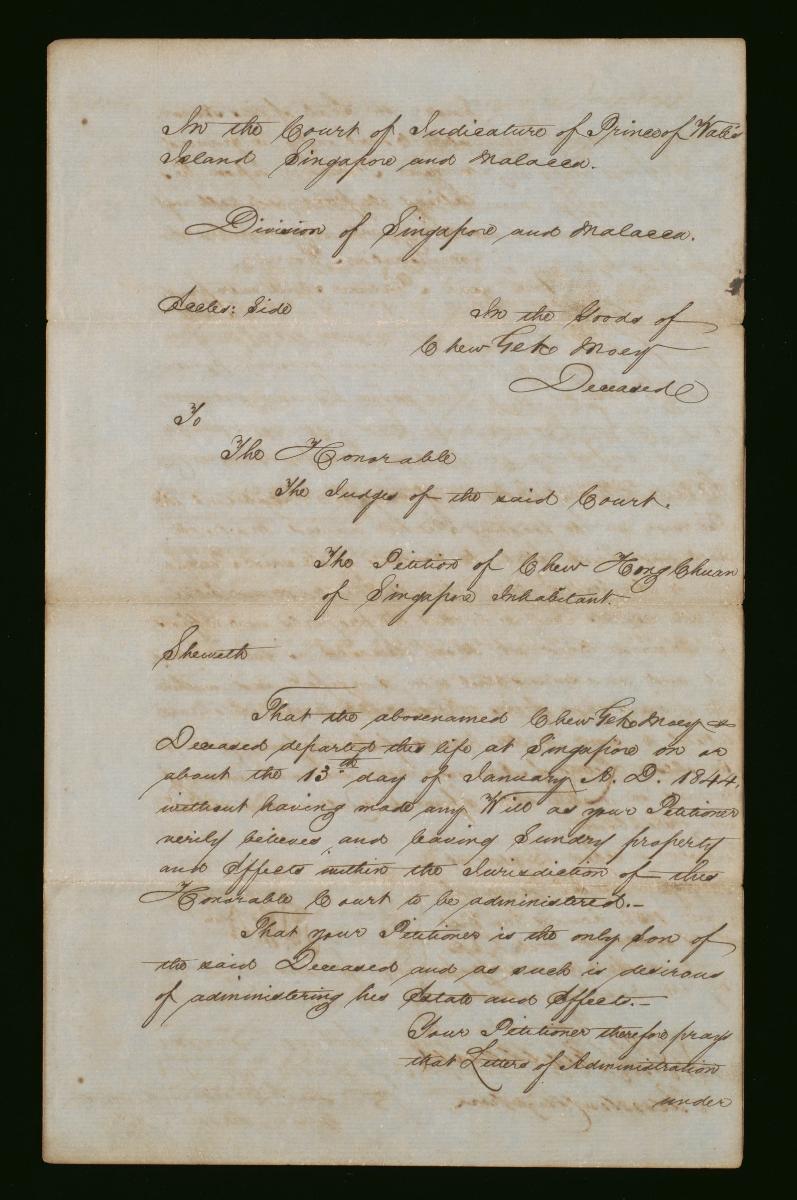 In the Court of Judicature of Prince of Wales
Island Singapore and Malacca.
Division of Singapore and Malacca.
Eccles: Side
In the Goods of
Chew Gek Moey
Deceased
To
The Honorable
The Judges of the said Court.
The Petition of Chew Hong Chuan
of Singapore Inhabitant.
Sheweth
That the abovenamed Chew Gek Moey
Deceased departed this life at Singapore on or
about the 13th day of January A. D. 1844,
without having made any Will as your Petitioner
verily believes, and leaving Sundry property
and Effects within the Jurisdiction of this
Honorable Court to be administered.-
That your Petitioner is the only Son of
the said Deceased and as such is desirous
of administering his Estate and Effects.-
Your Petitioner therefore prays
that Letters of Administration
under